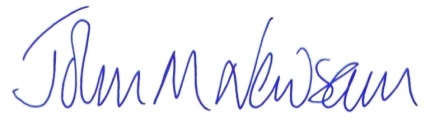 John M Newsam